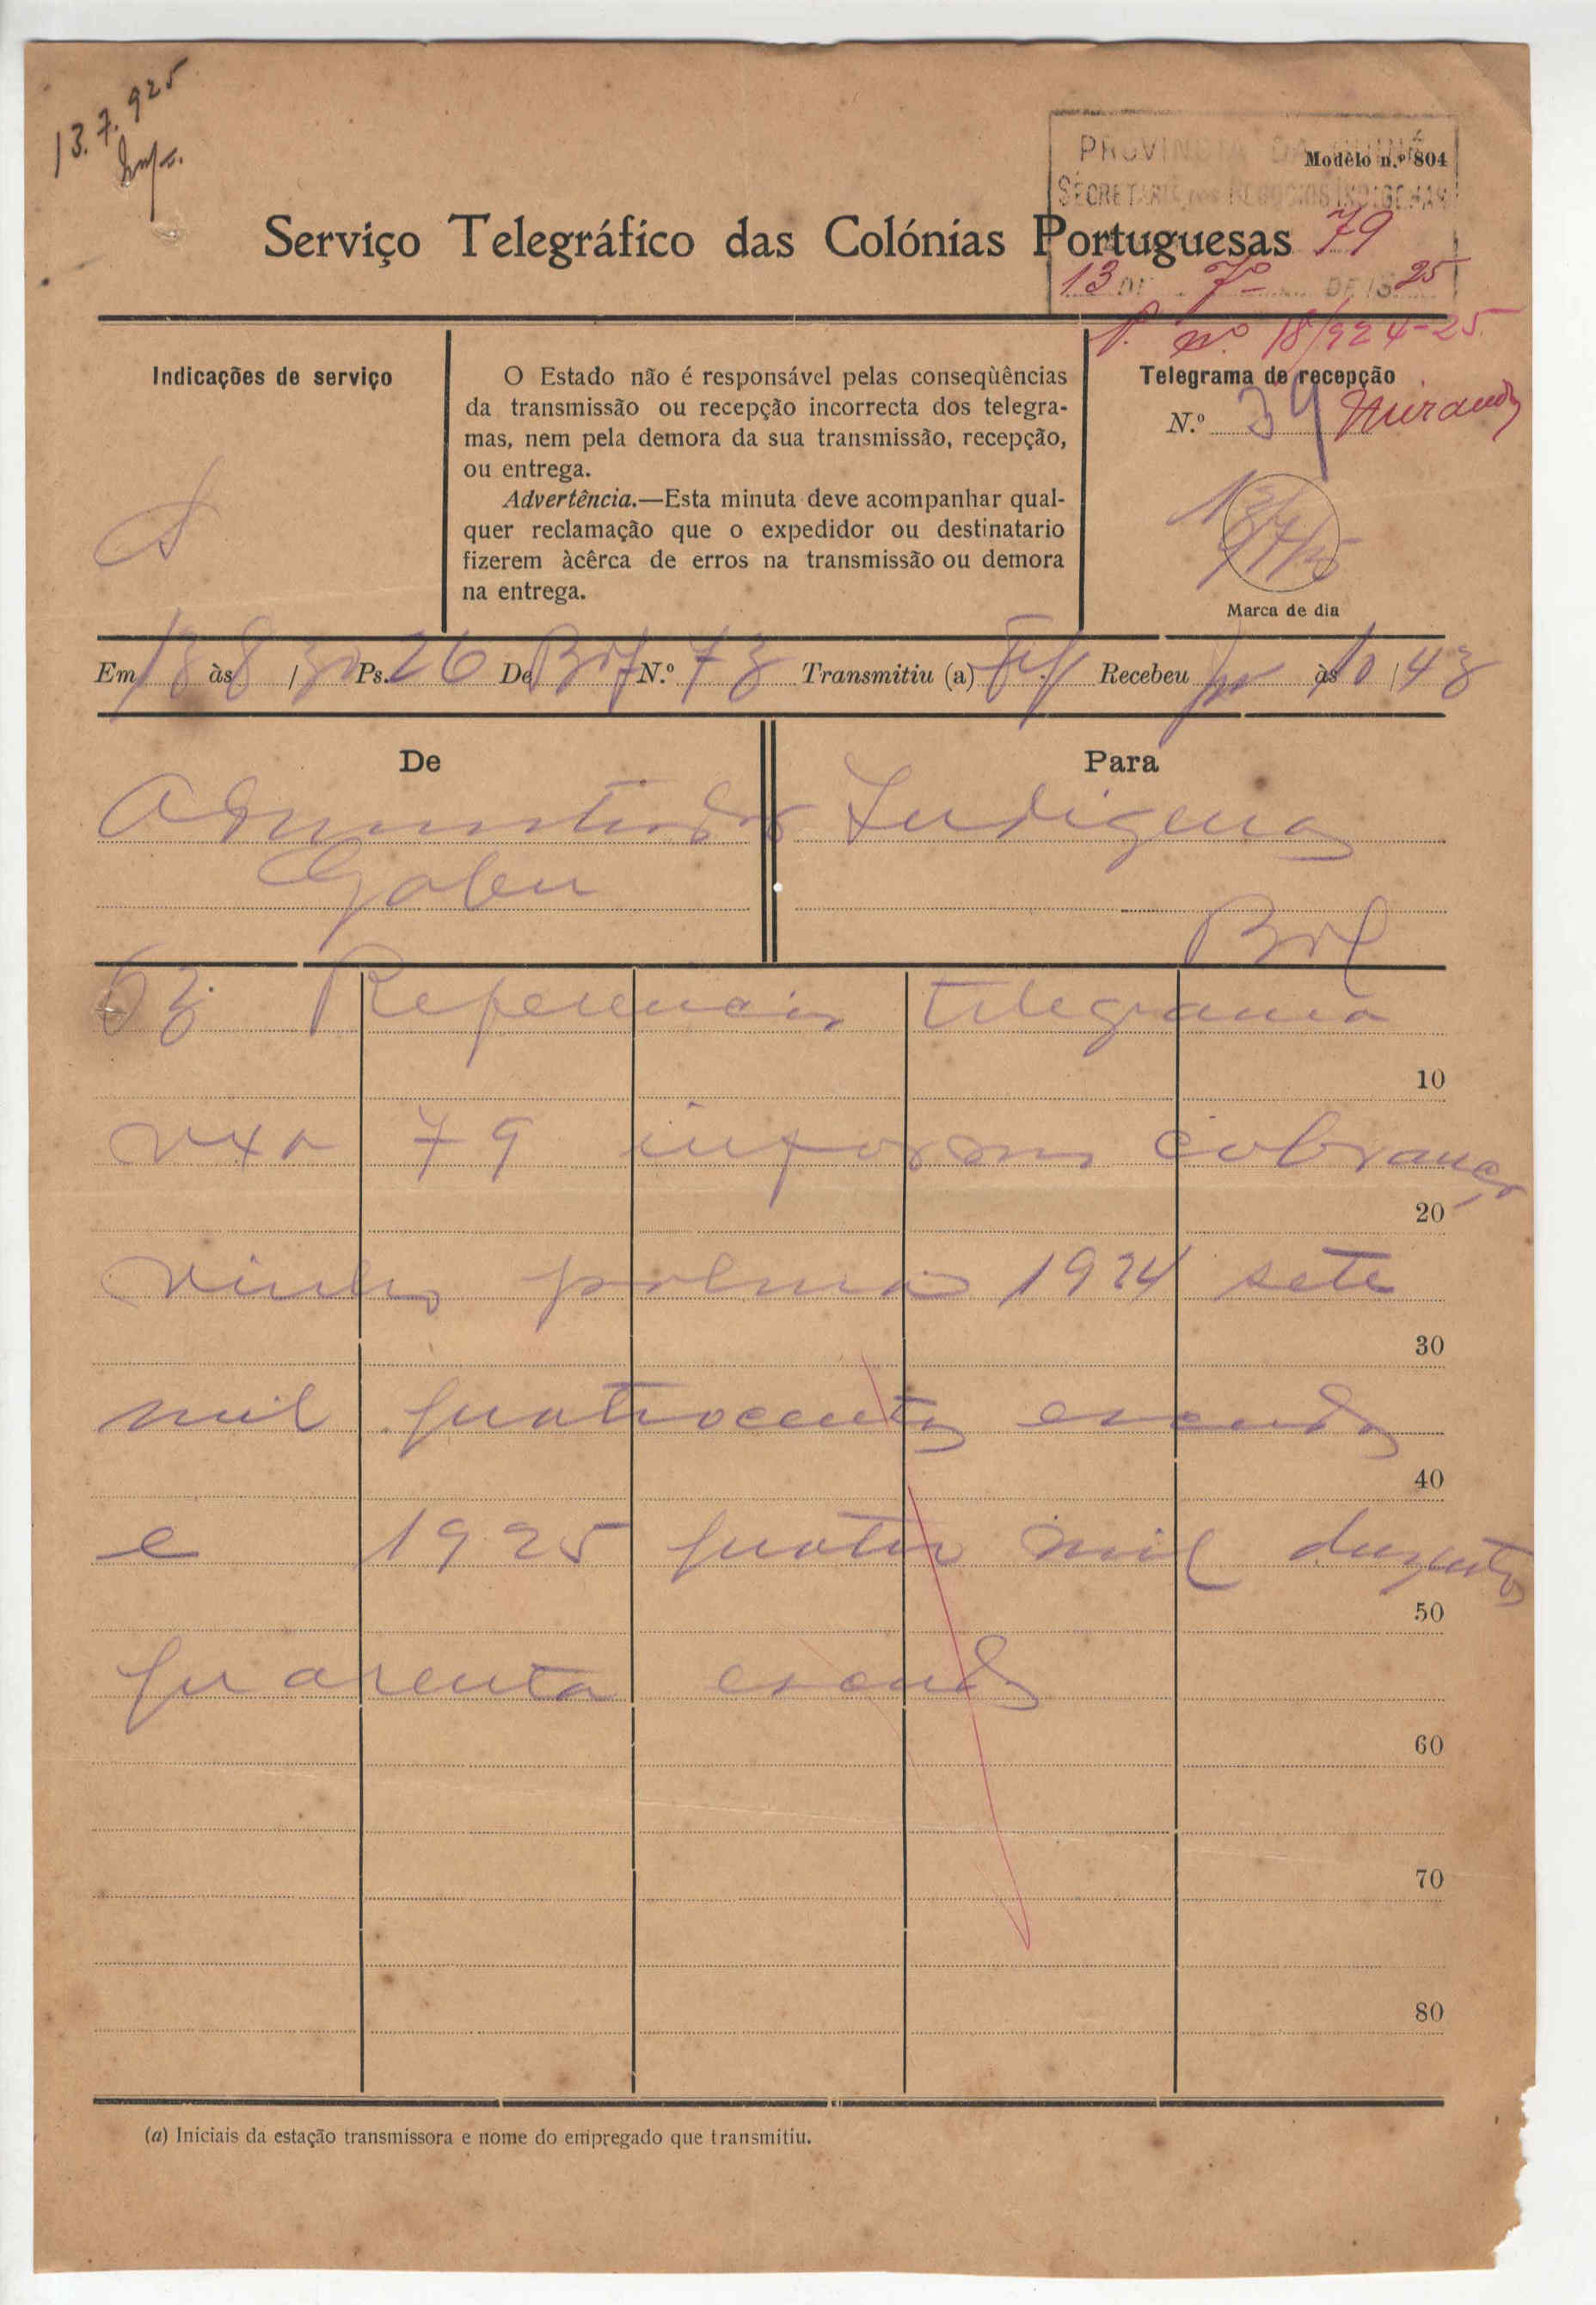 13.7.925
PROVINCIA DA GUINÉ
Modêlo n.º 804
SECRETARIA DOS NEGOCIOS INDIGENAS
Serviço Telegráfico das Colónias Portuguesas
79
13 DE 7º DE 19 25
P. nº 18/924-25
Indicações de serviço
S
O Estado não é responsável pelas conseqùências
da transmissão ou recepção incorrecta dos telegra-
mas, nem pela demora da sua transmissão, recepção,
ou entrega.
Advertência.—Esta minuta deve acompanhar qual-
quer reclamação que o expedidor ou destinatario
fizerem àcêrca de erros na transmissão ou demora
na entrega.
Telegrama de recepção
N.º 39 Miranda
Marca de dia
Em 13 às 8 / 30 Ps. 26 De N.º 73 Transmitiu (a) Recebeu às 10 / 43
De
Administrador
Gabu
Para
Indigenas
Bol
63 Referencia telegrama
10
vexa 79 informo cobrança
20
vinho palma 1924 sete
30
mil quatrocentos escudos
40
e 1925 quatro mil duzentos
50
quarenta escudos
60
70
80
(a) Iniciais da estação transmissora e nome do empregado que transmitiu.